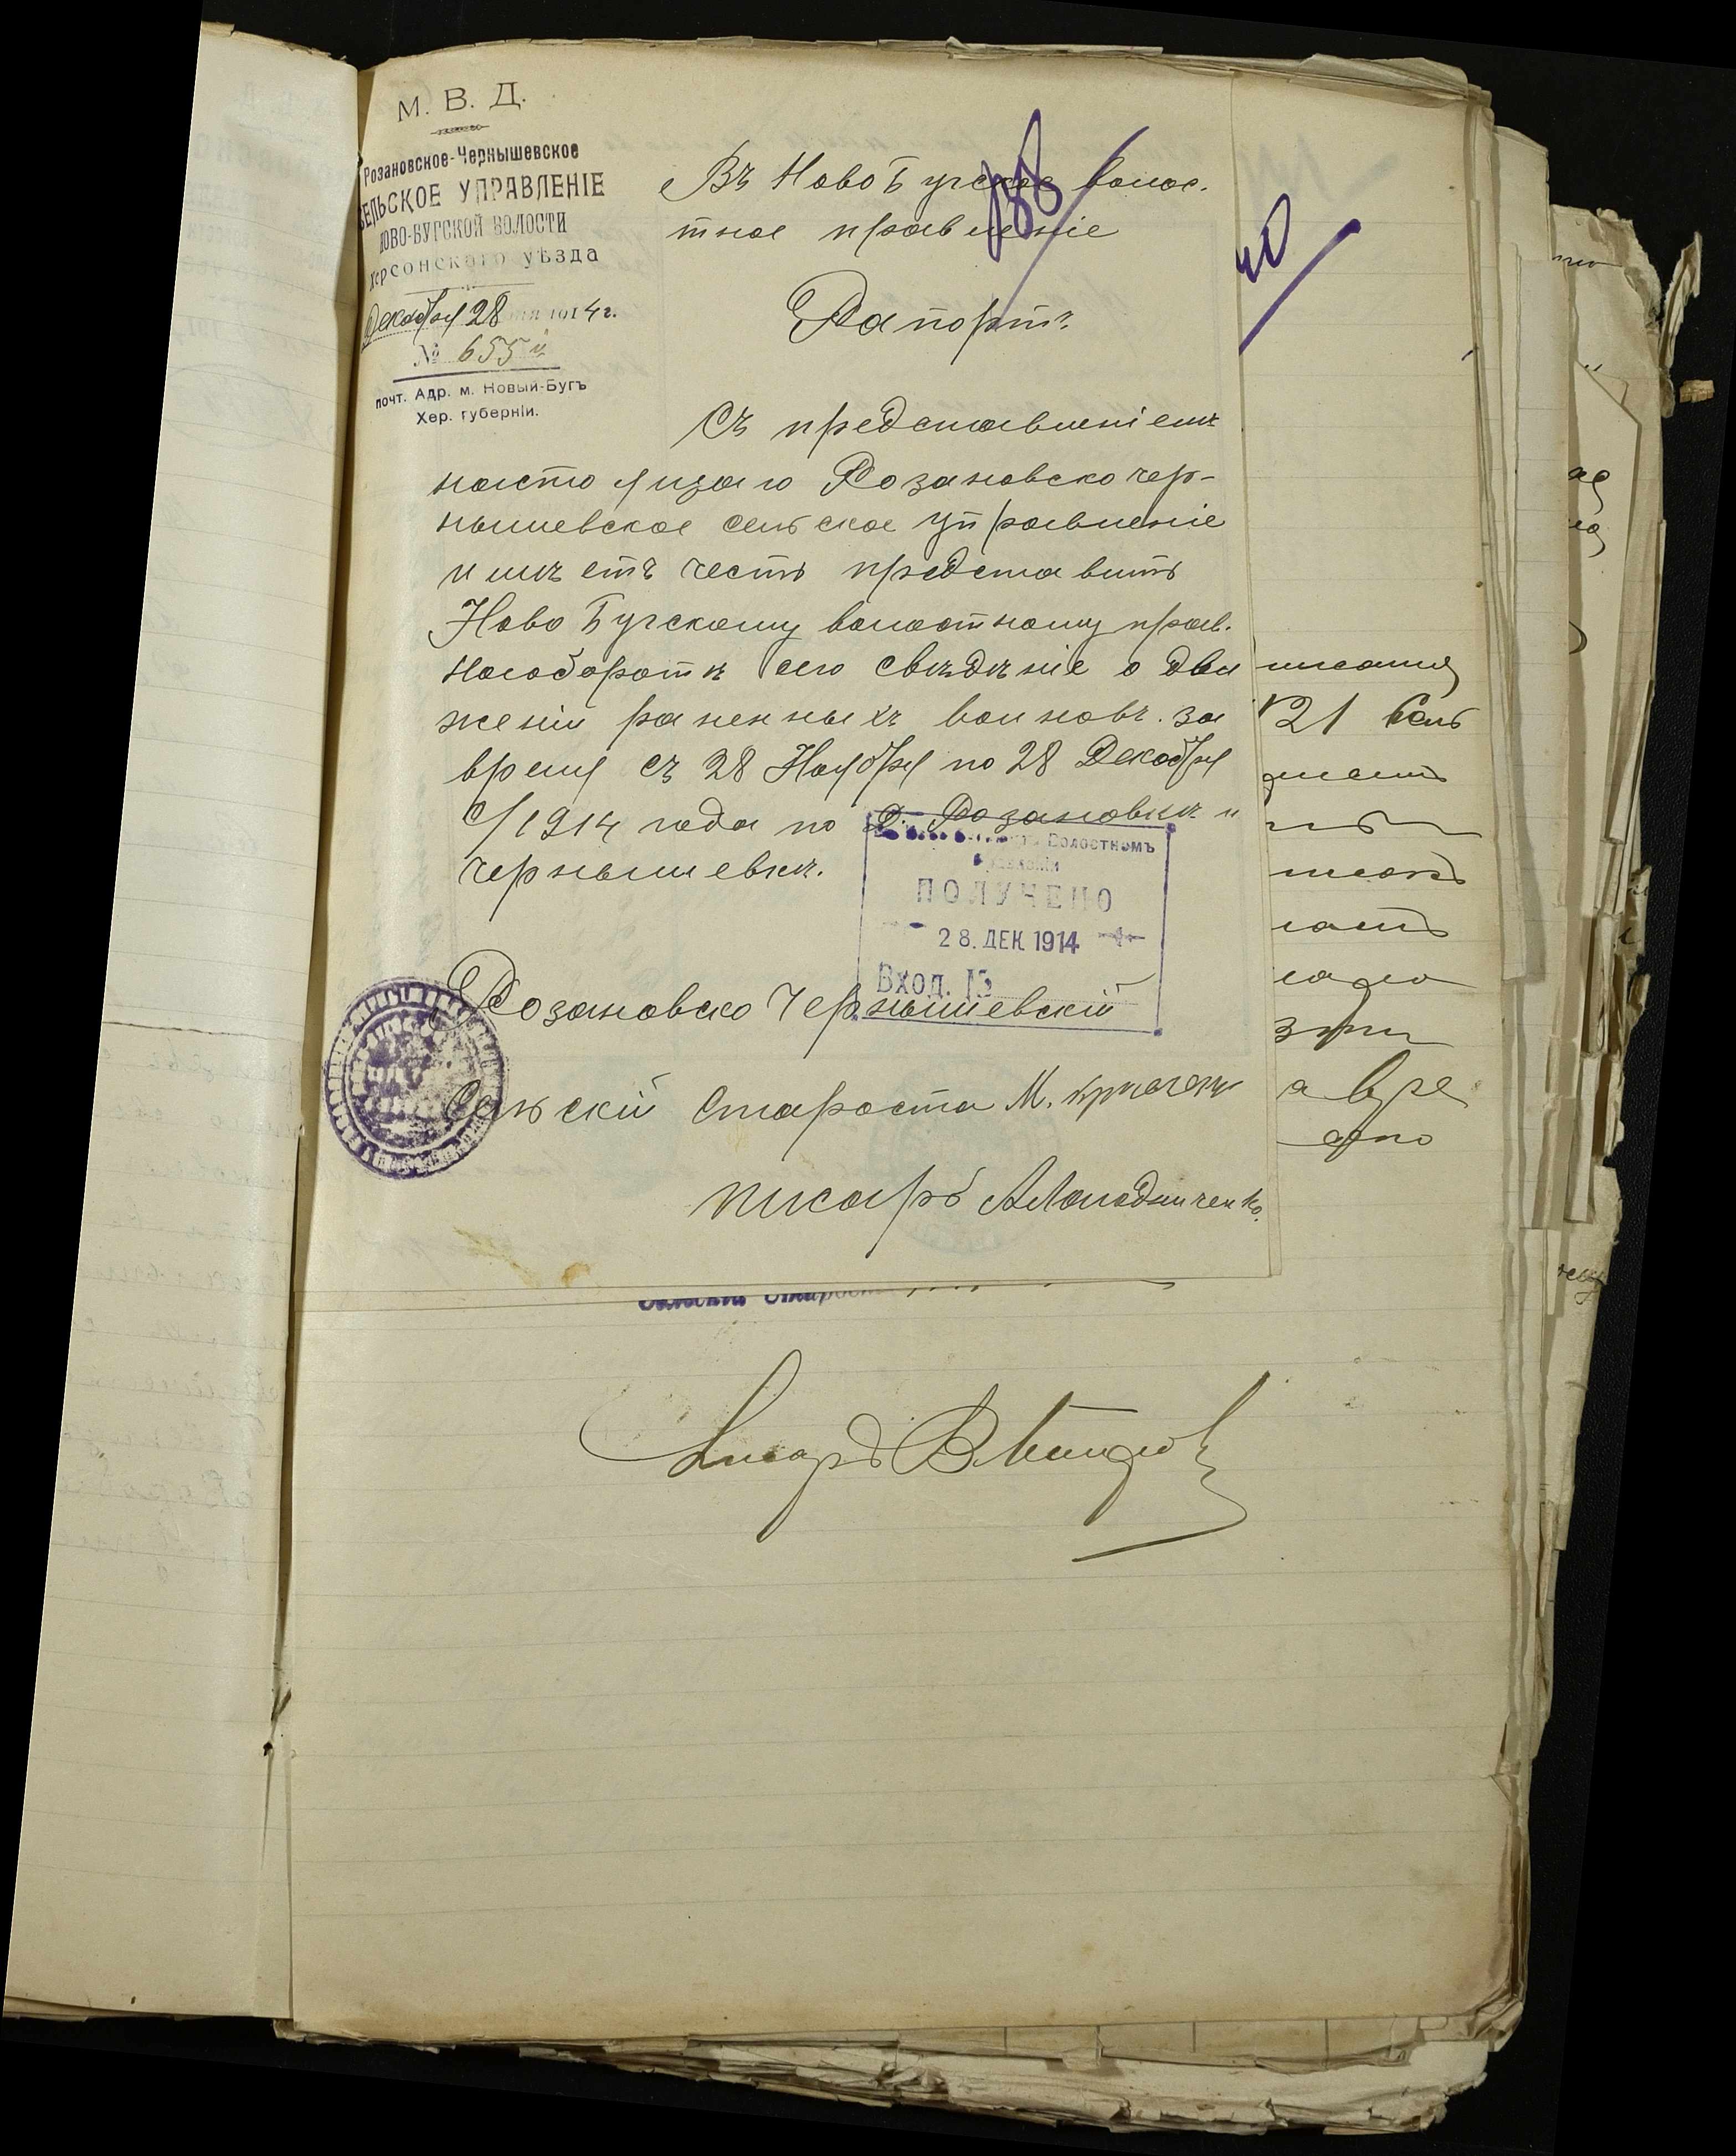 М. В. Д.
Розановское-Чернышевское
СЕЛЬСКОЕ УПРАВЛЕНІЕ
НОВО-БУГСКОЙ ВОЛОСТИ
Херсонскаго уѣзда
Декабря 28 дня 1914 г.
№ 655
почт. Адр. м. Новый-Бугъ
Хер. губерніи.
188
40
Въ Ново Бугское волос.
тное правленіе
Рапортъ
Съ представленіемъ
настоящаго Розановско чер-
нышевское сельское управленіе
имѣетъ честь представить
Ново Бугскому волостному прав.
наоборотѣ сего свѣдѣніе о дви
женіи раненныхъ воиновъ за
время съ 28 Ноября по 28 Декабря
с/1914 года по д. Розановкѣ и
чернышевкѣ.
Волостномъ
Правленіи
ПОЛУЧЕНО
28. ДЕК 1914
Вход. №
Розановско Чернышевскій
Сельскій Староста М.
писарь
писания
21 Сель
а вре
Сельскій Старост
Писарь В